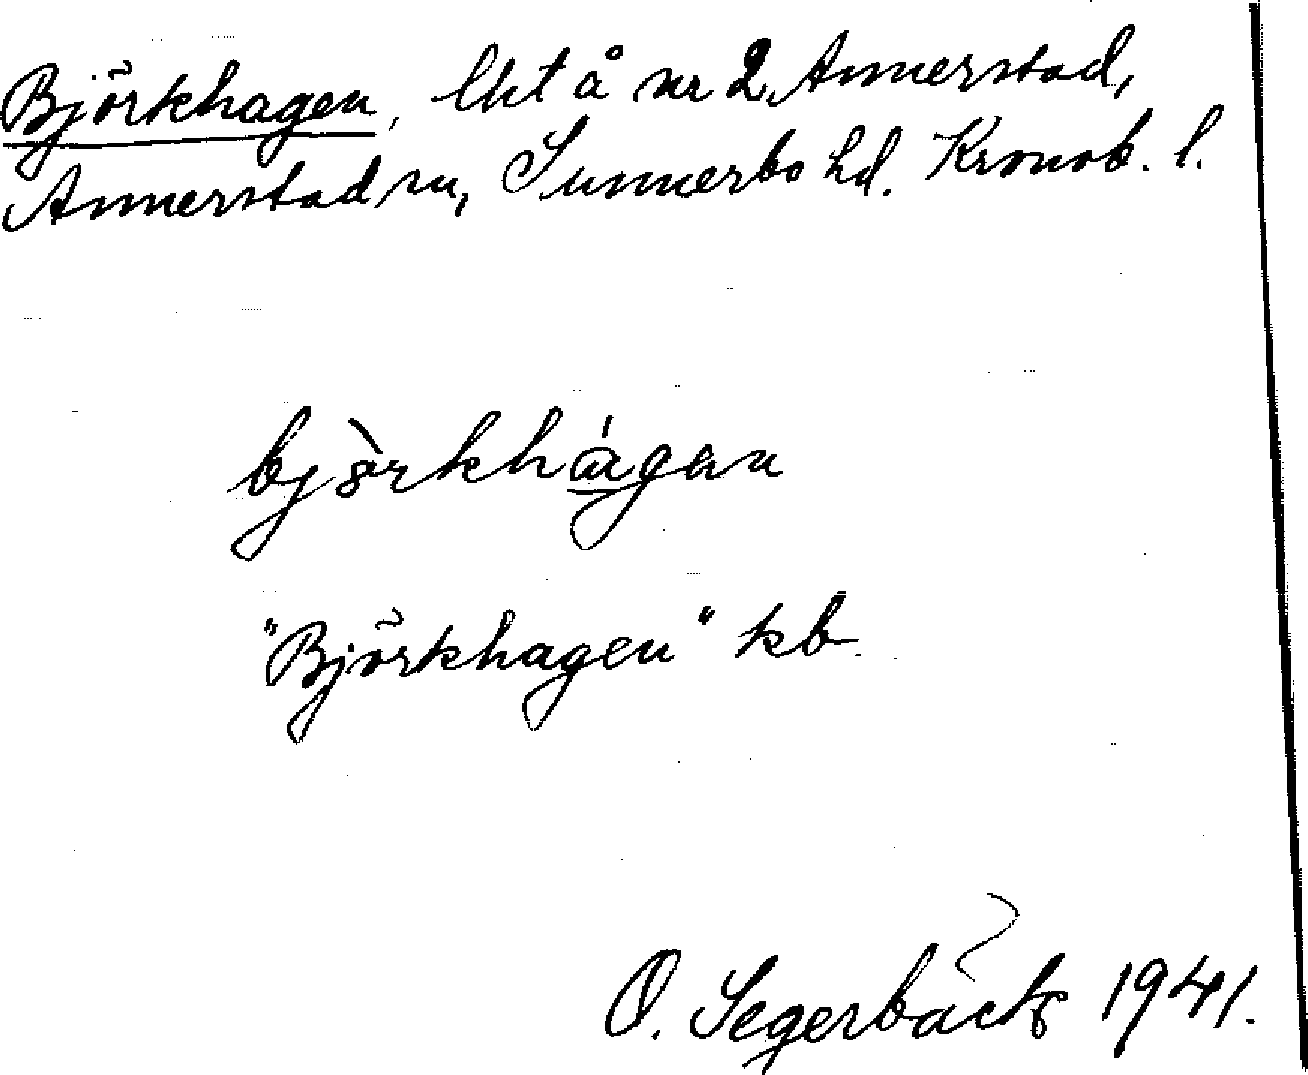 Björkhagen, lht å nr 2 Annerstad,
Annerstad sn, Sunnerbo hd. Kronob. l.
bjòrkhágan
"Björkhagen" kb
O. Segerbäck 1941.